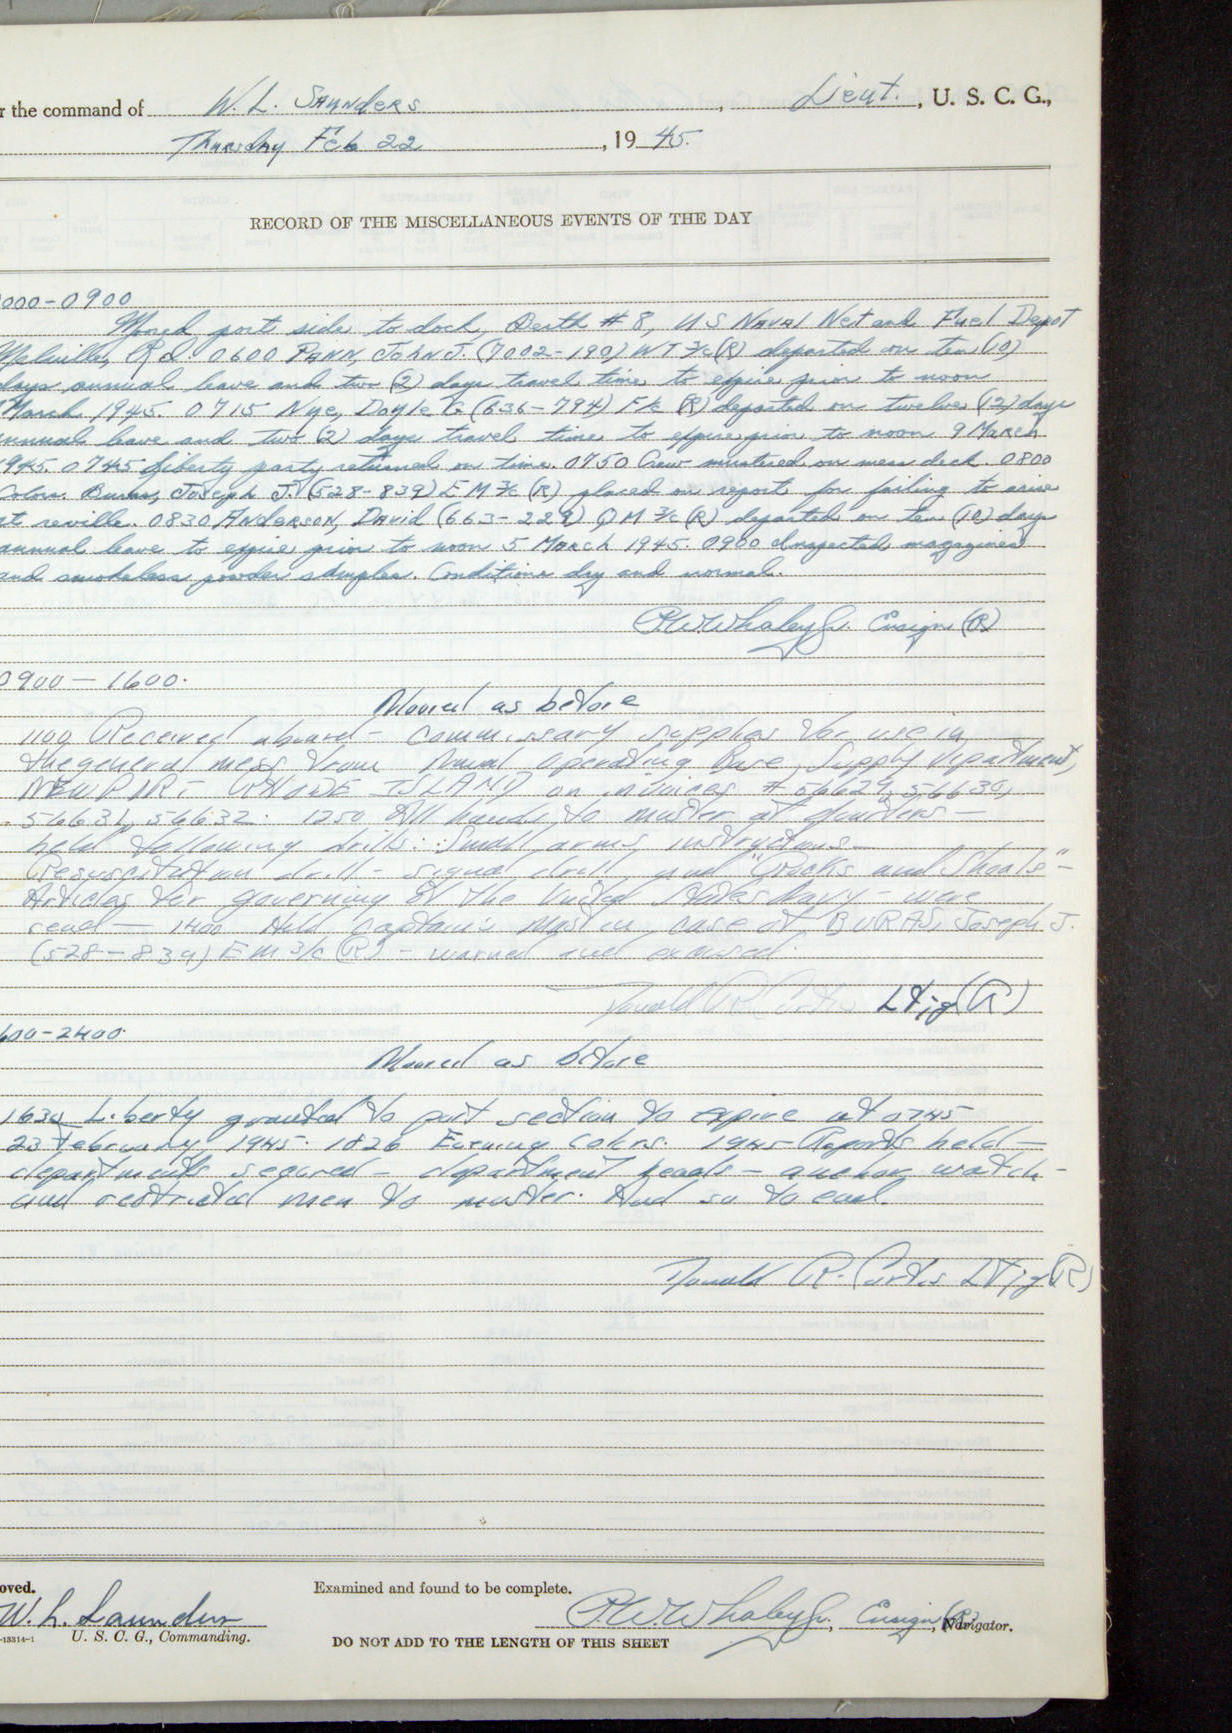 r the command of W. L. Saunders, Lieut., U. S. C. G.,
Thursday Feb 22, 1945.
RECORD OF THE MISCELLANEOUS EVENTS OF THE DAY
000-0900
Moored port side to dock, Berth #8, US Naval Net and Fuel Depot
Melville, R.I. 0600 PANN, John J. (7002-190) WT 3/c (R) departed on ten (10)
days annual leave and two (2) days travel time to expire prior to noon
March 1945. 0715 Nye, Doyle G (636-794) F1c (R) departed on twelve (12) days
annual leave and two (2) days travel time to expire prior to noon 9 March
1945. 0745 Liberty party returned on time. 0750 Crew mustered on mess deck. 0800
Colors. Buras, Joseph J. (528-839) EM 3/c (R) placed on report for failing to arise
at reville. 0830 ANDERSON, David (663-229) QM 3/c (R) departed on ten (10) days
annual leave to expire prior to noon 5 March 1945. 0900 Inspected magazines
and smokeless powder samples. Conditions dry and normal.
P.W. Whaley Jr. Ensign (R)
0900 — 1600.
Moored as before
1100 Received aboard - commissary supplies for use in
the general mess from Naval Operating Base, Supply Department,
NEWPORT RHODE ISLAND on invoices # 56629, 56630,
56631, 56632. 1250 All hands to muster at quarters -
held following drills: Small arms instructions -
Resuscitation drill - signal drill, and "Rocks and Shoals" -
Articles for governing of the United States Navy - were
read — 1400 Held captain's mast in case of BURAS, Joseph J.
(528-839) EM 3/c (R) - warned and excused.
Donald R. Curtis Ltjg (R)
600-2400.
Moored as before
1630 Liberty granted to port section to expire at 0745
23 February 1945. 1826 Evening Colors. 1945 Reports held —
departments secured - department heads - anchor watch -
and restricted men to muster. And so to end.
Donald R. Curtis Ltjg (R)
oved.
W. L. Saunders
-13314-1 U. S. C. G., Commanding.
Examined and found to be complete.
P.W. Whaley Jr., Ensign (R), Navigator.
DO NOT ADD TO THE LENGTH OF THIS SHEET